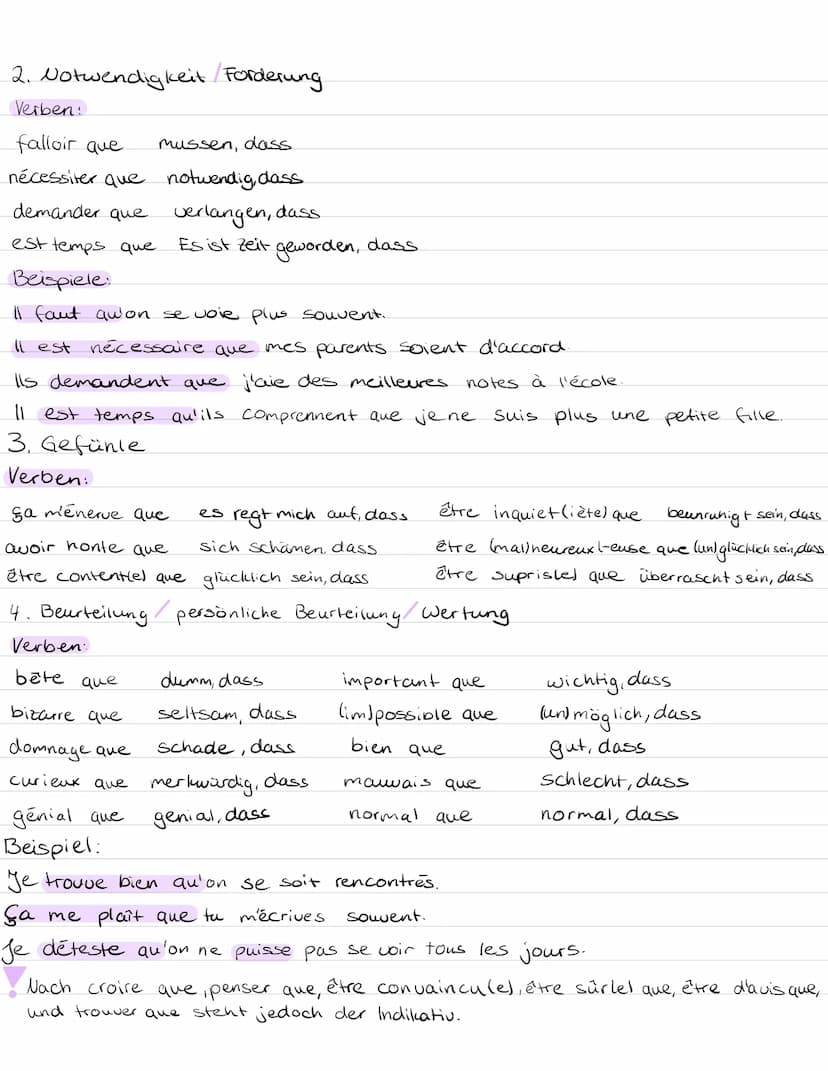 2. Notwendigkeit / Forderung
Verben:
falloir que mussen, dass
nécessiter que notwendig, dass
demander que verlangen, dass
est temps que Es ist Zeit geworden, dass
Beispiele:
Il faut qu'on se voie plus souvent.
Il est nécessaire que mes parents soient d'accord.
Ils demandent que j'aie des meilleures notes à l'école.
Il est temps qu'ils comprennent que je ne suis plus une petite fille.
3. Gefühle
Verben:
ça m'énerve que es regt mich auf, dass être inquiet(iète) que beunruhigt sein, dass
avoir honte que sich schämen, dass être (mal)heureux/-euse que (un)glücklich sein, dass
être content(e) que glücklich sein, dass être supris(e) que überrascht sein, dass
4. Beurteilung / persönliche Beurteilung / Wertung
Verben:
bête que dumm, dass important que wichtig, dass
bizarre que seltsam, dass (im)possible que (un)möglich, dass
domnage que schade, dass bien que gut, dass
curieux que merkwürdig, dass mauvais que schlecht, dass
génial que genial, dass normal que normal, dass
Beispiel:
Je trouve bien qu'on se soit rencontrés.
Ça me plaît que tu m'écrives souvent.
Je déteste qu'on ne puisse pas se voir tous les jours.
! Nach croire que, penser que, être convaincu(e), être sûr(e) que, être d'avis que,
und trouver que steht jedoch der Indikativ.